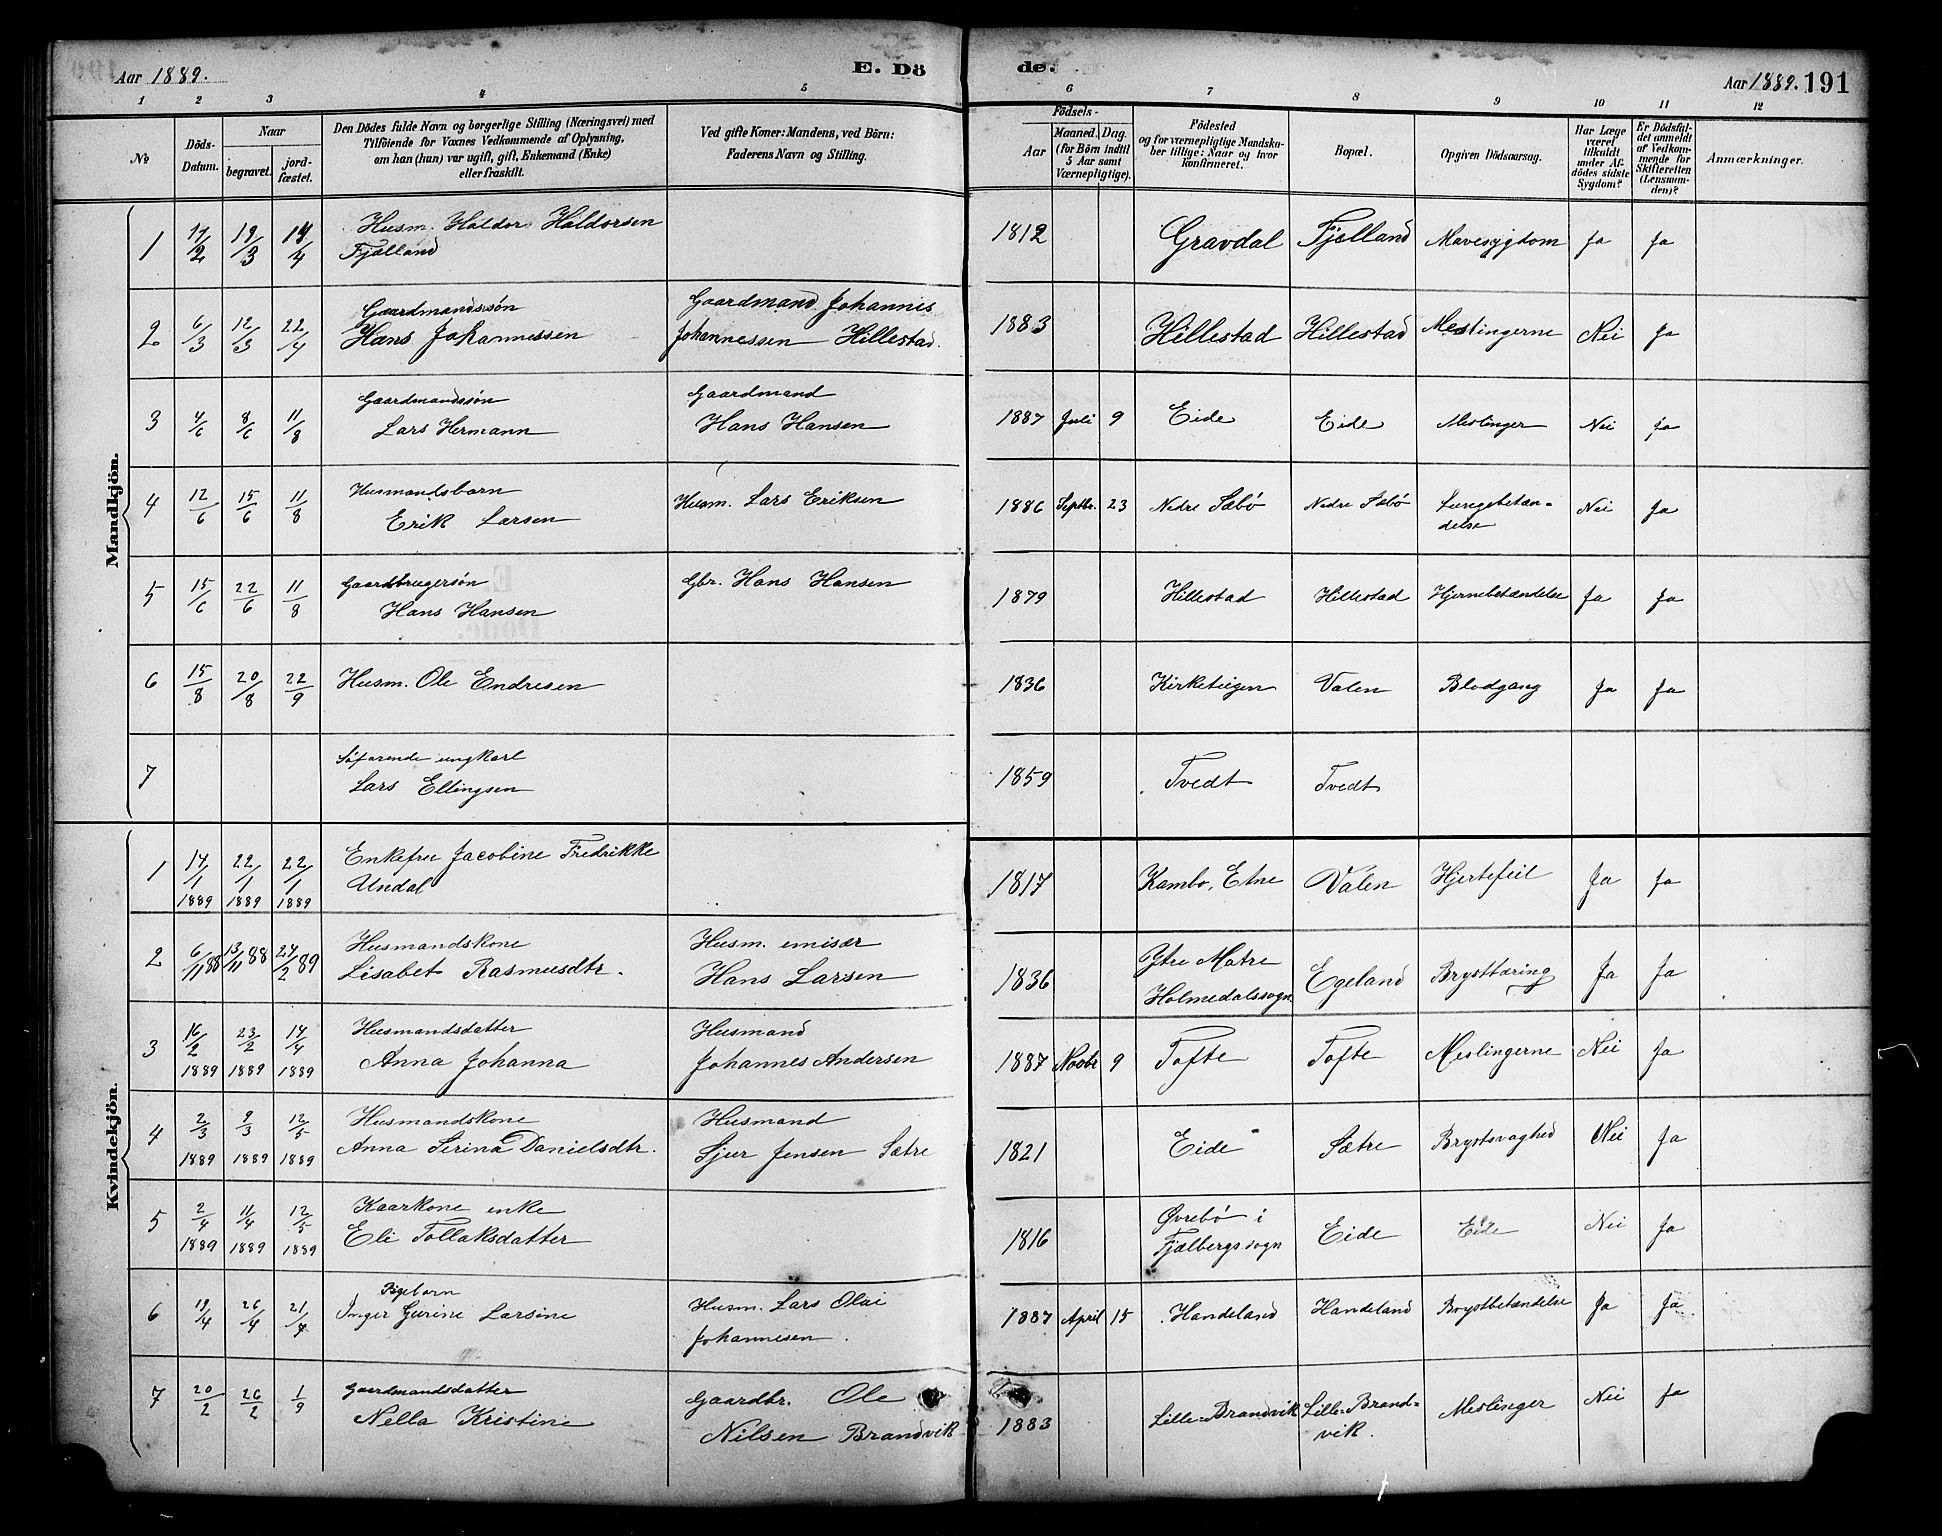 Aar 1889.
E. Dö
de.
Aar 1889. 191
1 2 3 4 5 6 7 8 9 10 11 12
No
Döds-Datum.
Naar
begravet. jordfæstet.
Den Dödes fulde Navn og borgerlige Stilling (Næringsvei) med
Tilföiende for Voxnes Vedkommende af Oplysning,
om han (hun) var ugift, gift, Enkemand (Enke)
eller fraskilt.
Ved gifte Koner: Mandens, ved Börn:
Faderens Navn og Stilling.
Födsels-
Aar
Maaned. Dag.
(for Börn indtil
5 Aar samt
Værnepligtige).
Födested
og for værnepligtige Mandskaber tillige: Naar og hvor
konfirmeret.
Bopæl.
Opgiven Dödsaarsag.
Har Læge
været
tilkaldt
under Afdödes sidste
Sygdom?
Er Dödsfaldet anmeldt
af Vedkommende for
Skifteretten
(Lensmanden)?
Anmærkninger.
Mandkjön.
1 17/2 19/3 14/4 Husm. Haldor Haldorsen
Fjælland
1812 Gravdal Fjælland Mavesygdom Ja Ja
2 6/3 12/3 22/4 Gaardmandssøn
Hans Johannessen
Gaardmand Johannes
Johannessen Hillestad.
1883 Hillestad Hillestad Meslingerne Nei Ja
3 4/6 8/6 11/8 Gaardmandssøn
Lars Hermann
Gaardmand
Hans Hansen
1887 Juli 9 Eide Eide Meslinger Nei Ja
4 12/6 15/6 11/8 Husmandsbarn
Erik Larsen
Husm. Lars Eriksen
1886 Septbr. 23 Nedre Sæbø Nedre Sæbø Lungebetæn-
delse Nei Ja
5 15/6 22/6 11/8 Gaardbrugersøn
Hans Hansen
Gbr. Hans Hansen
1879 Hillestad Hillestad Hjernebetændelse Ja Ja
6 15/8 20/8 22/9 Husm. Ole Endresen
1836 Kirketeigen Valen Blodgang Ja Ja
7 Søfarende ungkarl
Lars Ellingsen
1859 Tvedt Tvedt
Kvindekjön.
1 17/1 1889 22/1 1889 22/1 1889 Enkefru Jacobine Fredrikke
Undal
1817 Kambo, Etne Valen Hjertefeil Ja Ja
2 6/11 88 13/11 88 24/2 89 Husmandskone
Lisabet Rasmusdtr.
Husm. emisær
Hans Larsen
1836 Ytre Matre
Holmedalssogn Egeland Brysttæring Ja Ja
3 16/2 1889 23/2 1889 14/4 1889 Husmandsdatter
Anna Johanna
Husmand
Johannes Andersen
1887 Novbr 9 Tofte Tofte Meslingerne Nei Ja
4 2/3 1889 9/3 1889 12/5 1889 Husmandskone
Anna Serina Danielsdtr.
Husmand
Sjur Jensen Sætre
1821 Eide Sætre Brystsvaghed Nei Ja
5 2/4 1889 11/4 1889 12/5 1889 Kaarkone enke
Eli Tollaksdatter
1816 Øvrebø i
Fjælbergssogn Eide Eide Nei Ja
6 19/4 26/4 21/7 Pigebarn
Inger Gurine Larsine
Husm. Lars Olai
Johannesen.
1887 April 15 Handeland Handeland Brystbetændelse Ja Ja
7 20/2 26/2 1/9 Gaardmandsdatter
Nella Kristine
Gaardbr. Ole
Nilsen Brandvik
1883 Lille-Brandvik Lille-Brand-
vik. Meslinger Nei Ja